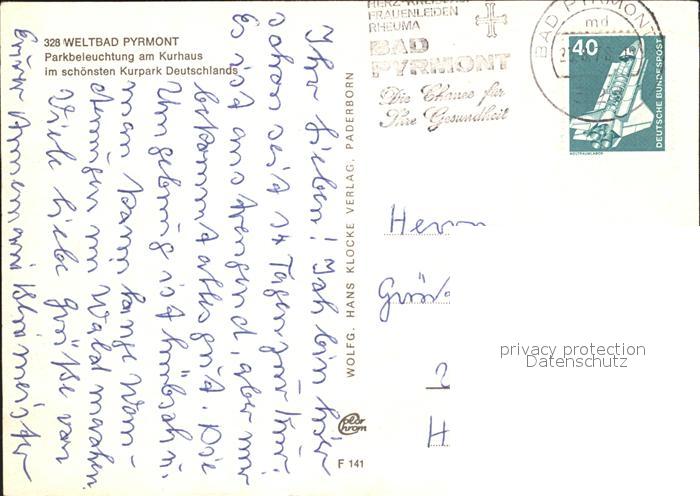 328 WELTBAD PYRMONT
Parkbeleuchtung am Kurhaus
im schönsten Kurpark Deutschlands
Ihr Lieben! Ich bin hier
schon seit 14 Tagen zur Kur.
Es ist anstrengend, aber mir
bekommt alles gut. Die
Umgebung ist hübsch u.
man kann lange Wan-
derungen im Wald machen.
Viele liebe Grüße von
Eurer Annemarie
WOLFG. HANS KLOCKE VERLAG, PADERBORN
color
chrom
F 141
FRAUENLEIDEN
RHEUMA
BAD
PYRMONT
Die Chance für
Ihre Gesundheit
BAD PYRMONT
md
40
DEUTSCHE BUNDESPOST
WELTRAUMLABOR
Herrn
2
H
privacy protection
Datenschutz